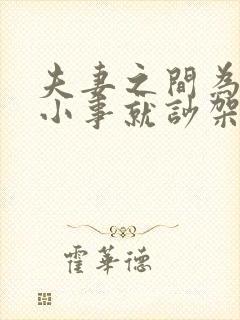 夫妻之間為
小事就訬架
霍華德